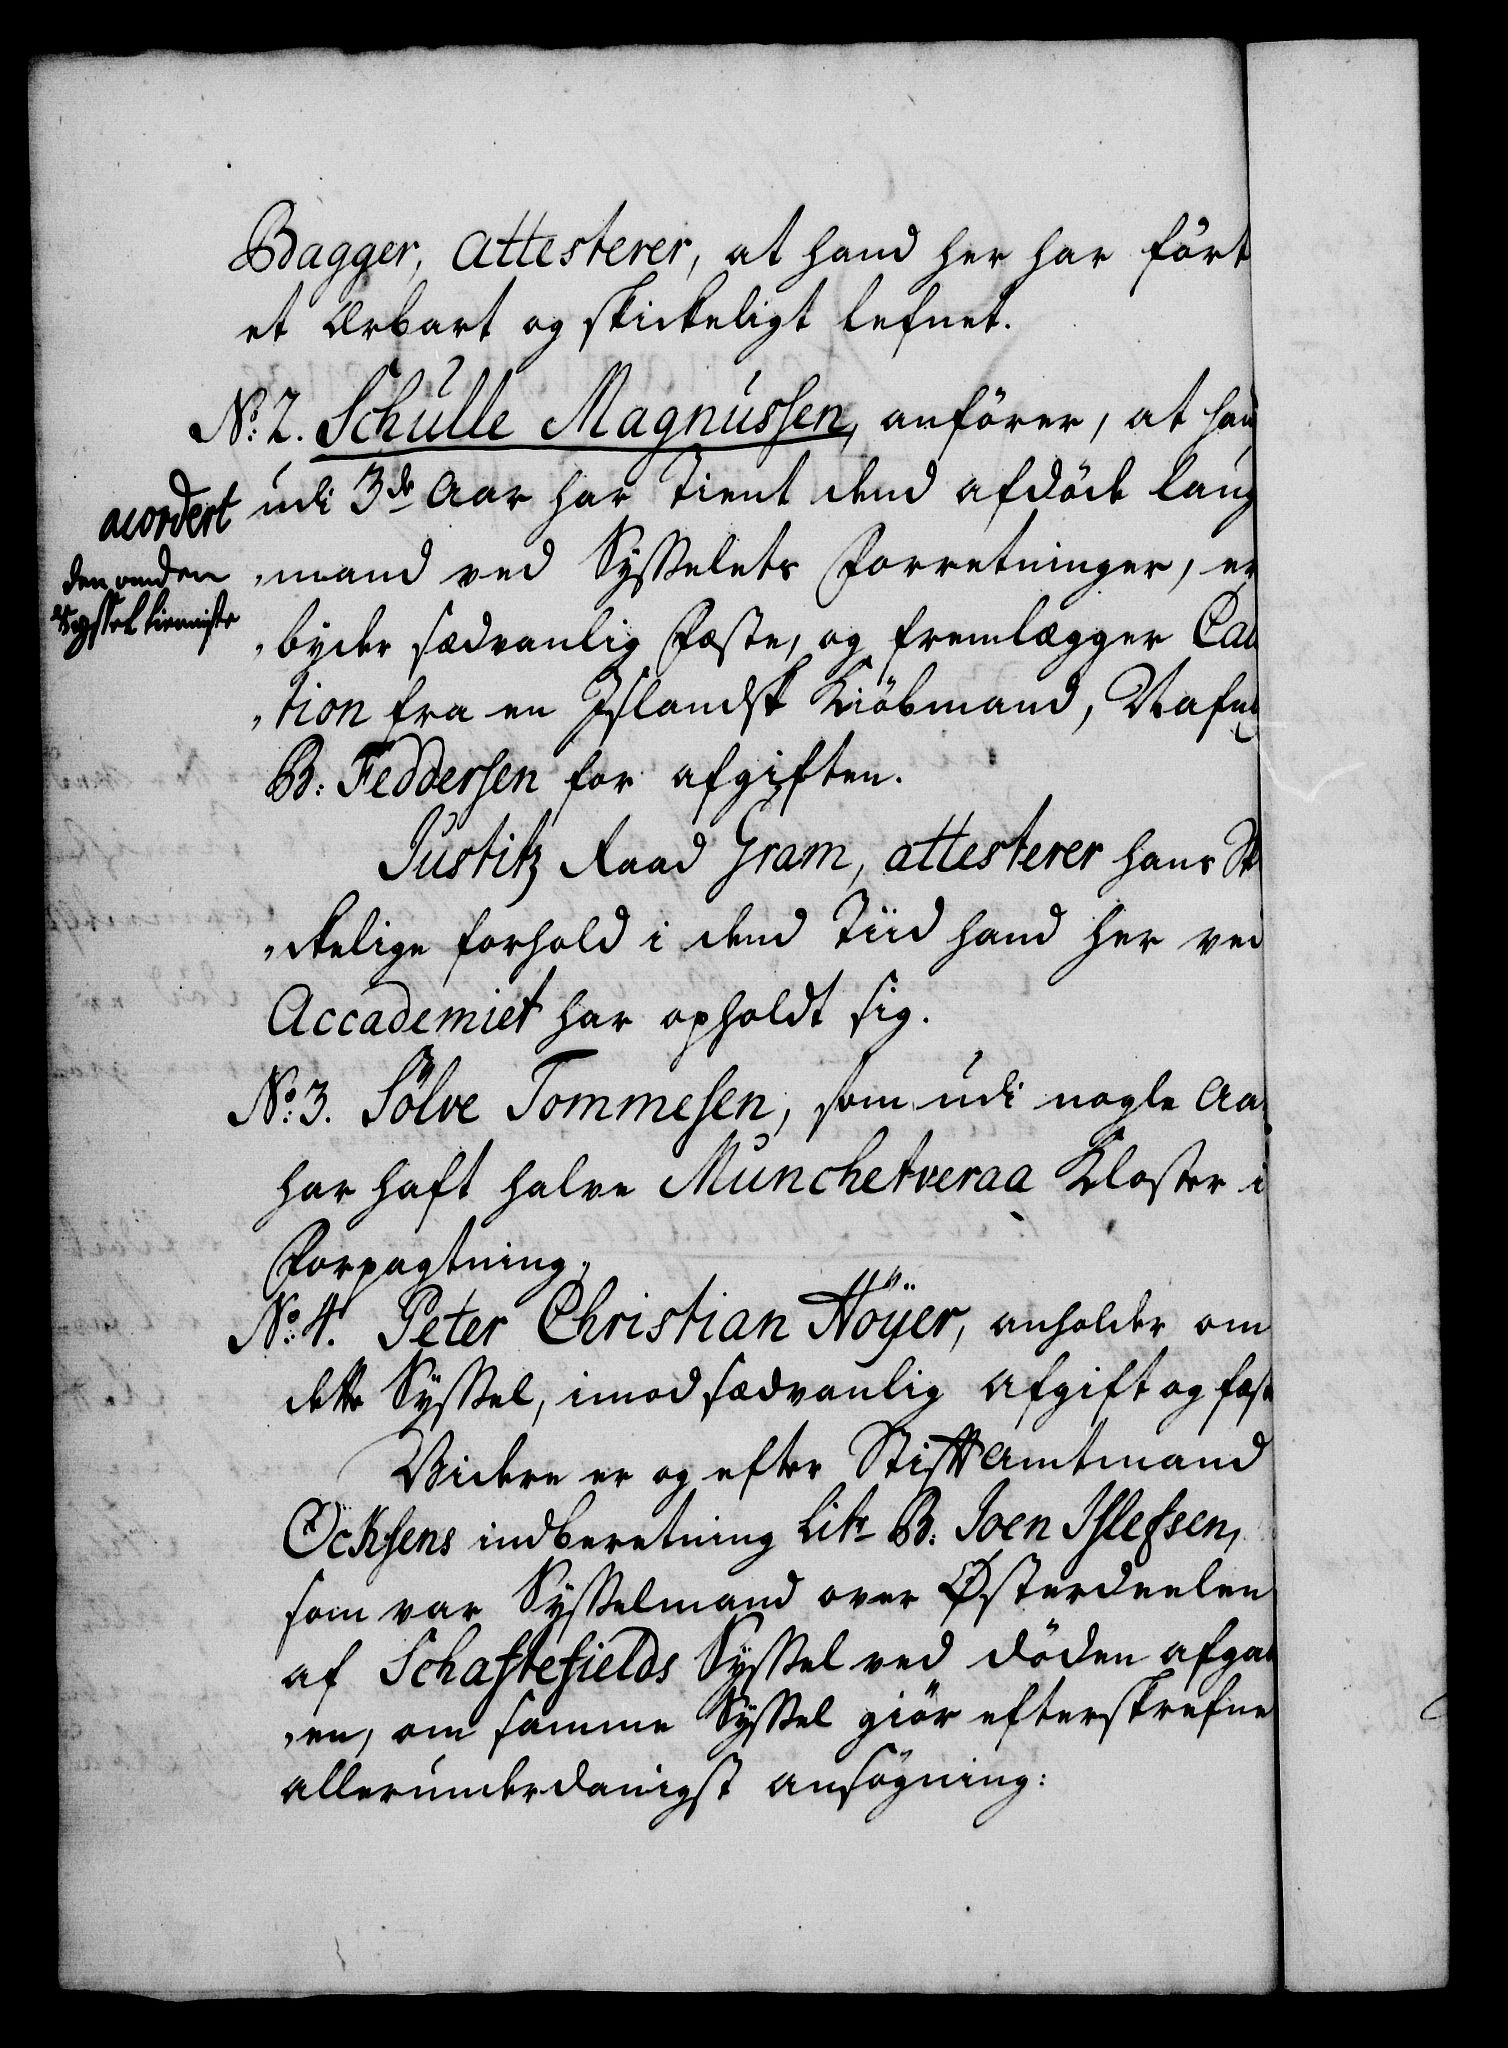 Bagger, attesterer, at hand her har ført
et Ærbart og skickeligt lefnet.
No: 2. Schulle Magnussen, anfører, at han
udi 3de Aar har tient dend afdøde laug
„mand ved Sysselets Forretninger, er
„byder sædvanlig Fæste, og fremlægger Cau
„tion fra en Islandsk Kiöbmand, Nafnl
B: Feddersen for afgiften.
Justitz Raad Gram, attesterer hans Ski
„ckelige forhold i dend Tiid hand her ved
Accademiet har opholdt sig.
No: 3. Sölve Tommesen, som udi nogle Aar
har haft halve Munchetveraa Kloster i
Forpagtning,
No: 4. Peter Christian Höÿer, anholder om
dette Syssel, imod sædvanlig Afgift og fæste
Videre er og efter Stift Amtmand
Ocksens indberetning Litr B: Joen Islefsen,
som var Sysselmand over Østerdeelen
af Schaftefields Syssel ved døden afgaa
„en, om samme Syssel giör efterskrefne
allerunderdanigst ansøgning:
acordert
den anden
Syssel